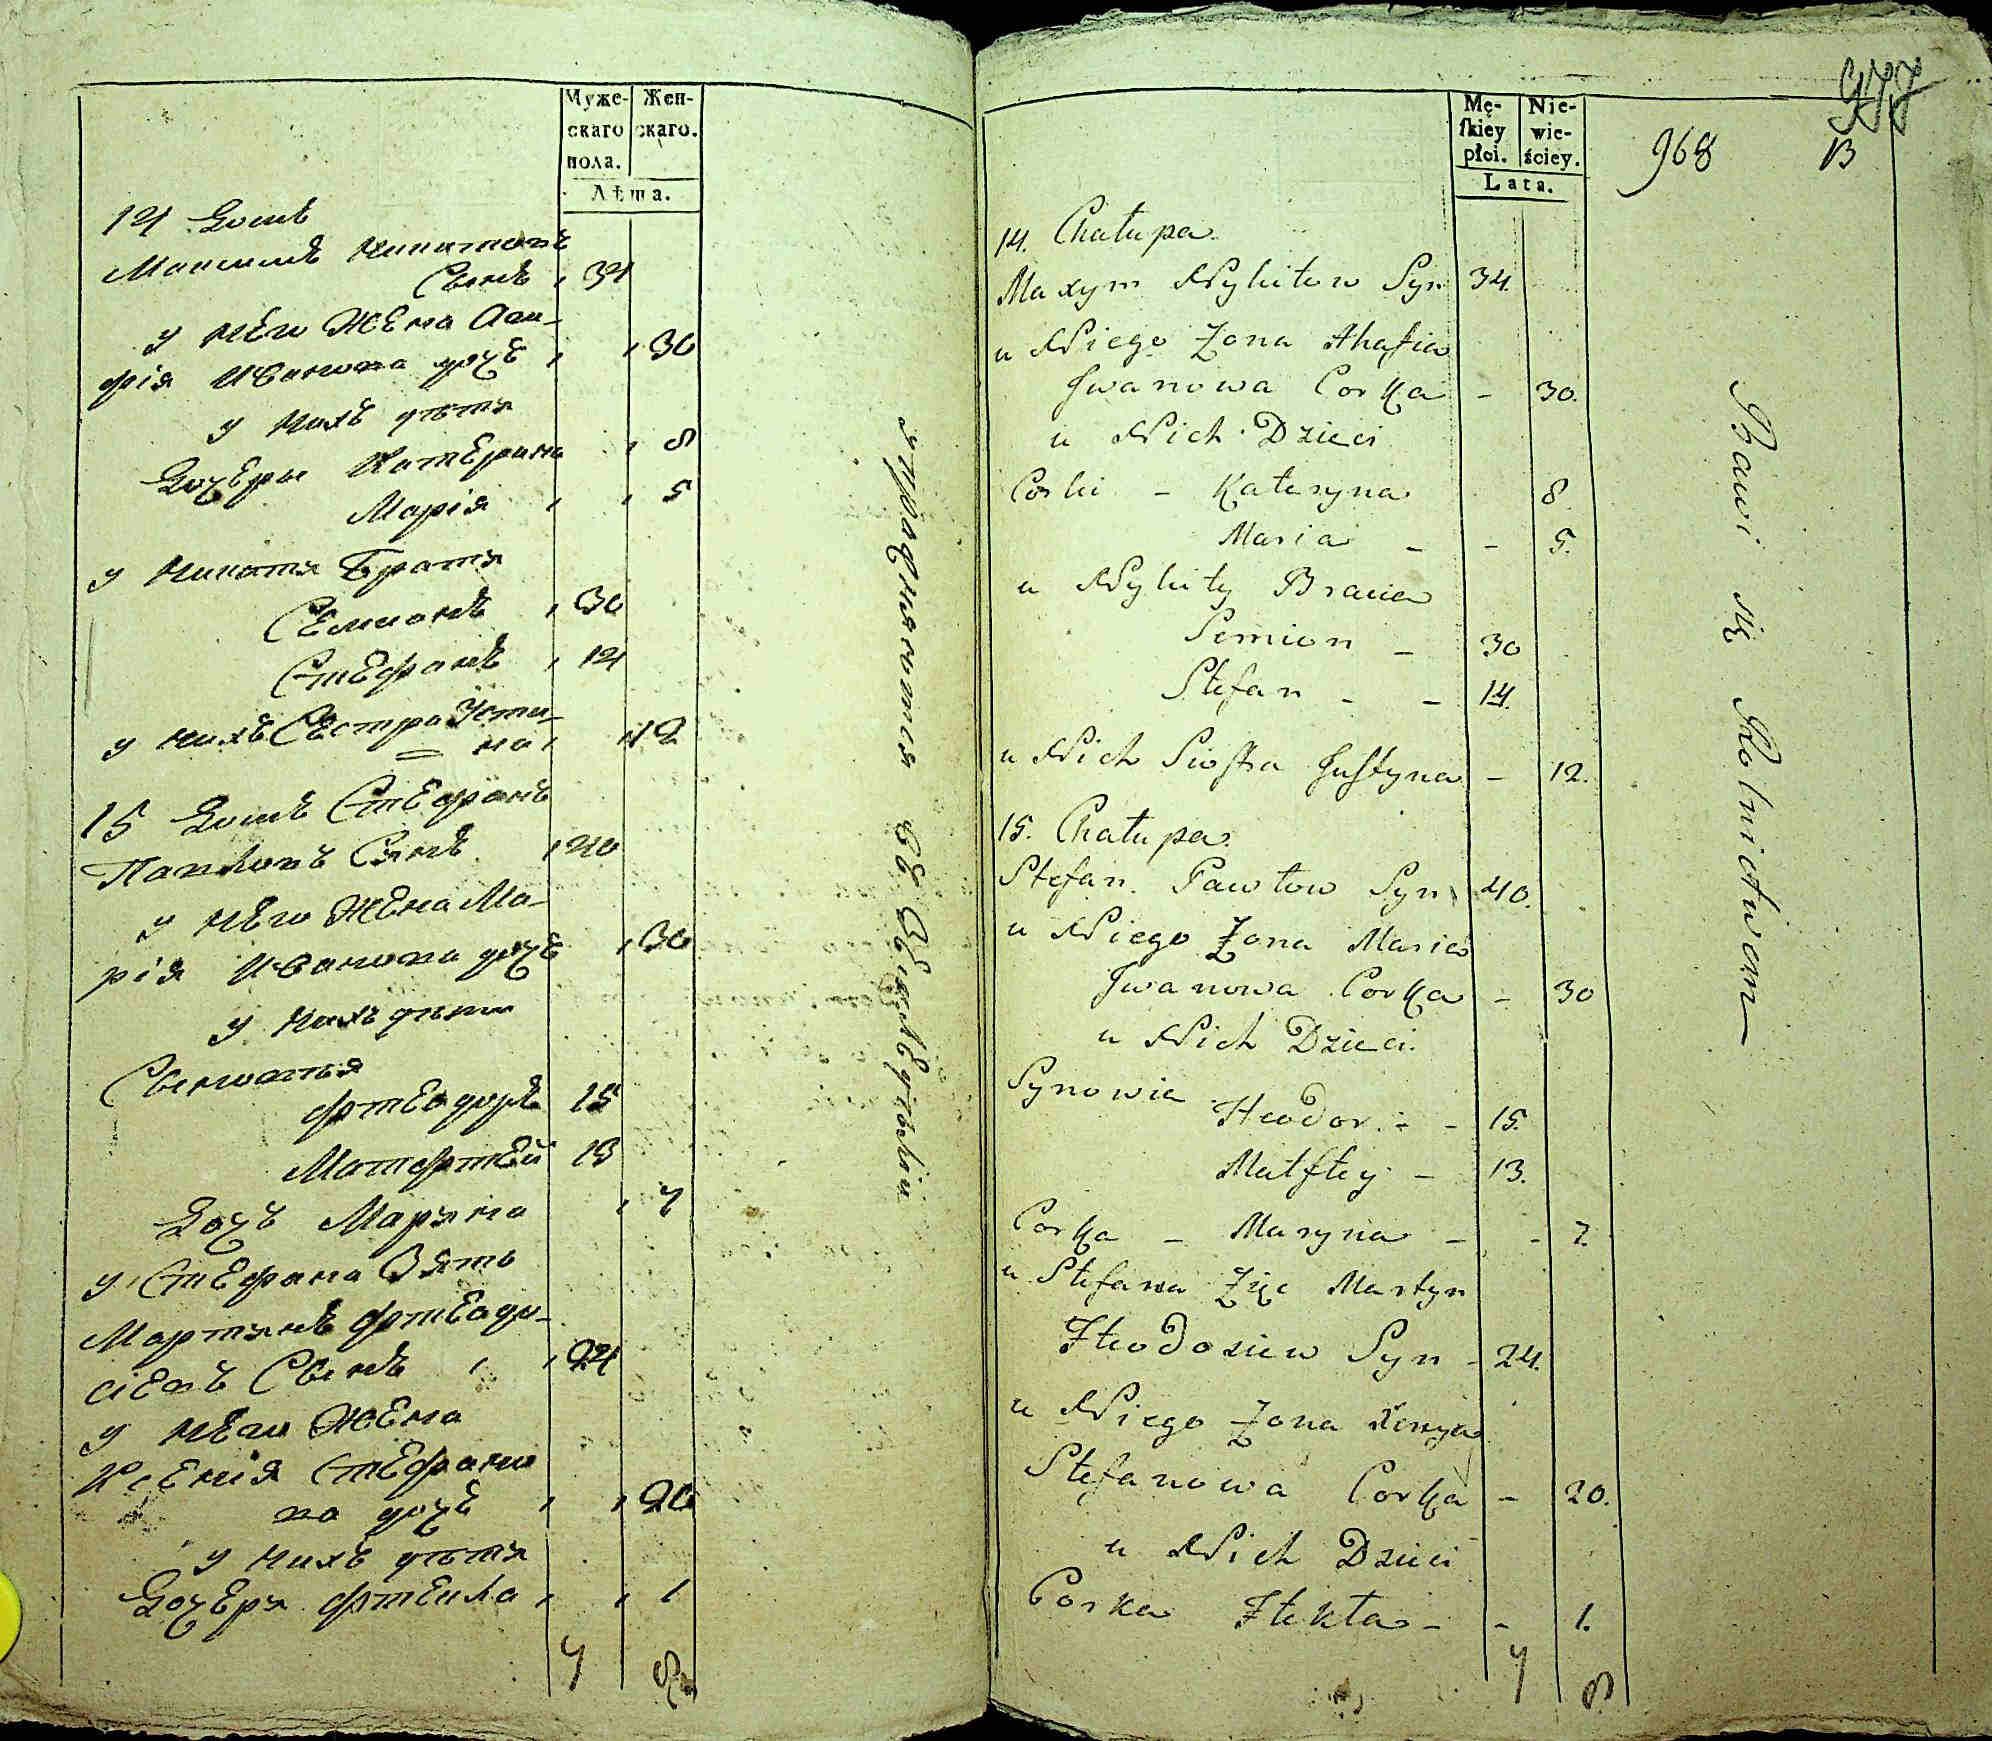 Муже-
скаго
пола.
Жен-
скаго.
Лѣта.
14 Домъ
Максимъ Никитовъ
Сынъ 34
у него Жена Ага-
фія Иванова дочь 30
у нихъ дѣти
Дочери Катерина 8
Марія 5
у Никити Братя
Семионъ 30
Стефанъ 14
у нихъ Сестра Усти-
на 12
15 Домъ Стефанъ
Павловъ Синъ 40
у него Жена Ма-
рія Иванова дочь 30
у нихъ дѣти
Синовья
Фтеодоръ 15
Матфтей 13
Дочь Марина 7
у Стефана Зять
Мартинъ Фтеодо-
сіевъ Сынъ 24
у него Жена
Ксенія Стефано
ва дочь 20
у нихъ дѣти
Дочери Фтекла 1
7 8
упражняются въ Земледѣліи
Mę-
skiey
płci.
Nie-
wie-
ściey.
Lata.
977
968 13
14. Chałupa.
Maxym Nykitow Syn 34.
u Niego Zona Ahafia
Jwanowa Corka - 30.
u Nich Dzieci
Corki - Kateryna 8
Maria - - 5.
u Nykity Bracia
Semion - 30
Stefan - - 14.
u Nich Siostra Justyna - 12.
15. Chałupa.
Stefan Pawłow Syn 40.
u Niego Zona Maria
Jwanowa Corka - 30
u Nich Dzieci.
Synowie
Fteodor. - - 15.
Matftey - 13.
Corka - Maryna - - 7.
u Stefana Zięc Martyn
Fteodosiew Syn - 24.
u Niego Zona Xenya
Stefanowa Corka - 20.
u Nich Dzieci
Corka Ftekta - - 1.
7 8
Bawi się Rolnictwem